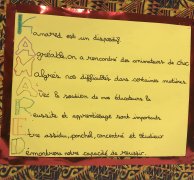 Kamared est un dispositif.
Agréable, on a rencontré des animateurs de choc
Malgrés nos difficultés dans certaines matières.
Avec le soutien de nos éducateurs la
Réussite et apprentissage sont importants.
Être assidu, ponctuel, concentré et studieux
Démontrera notre capacité de réussir.